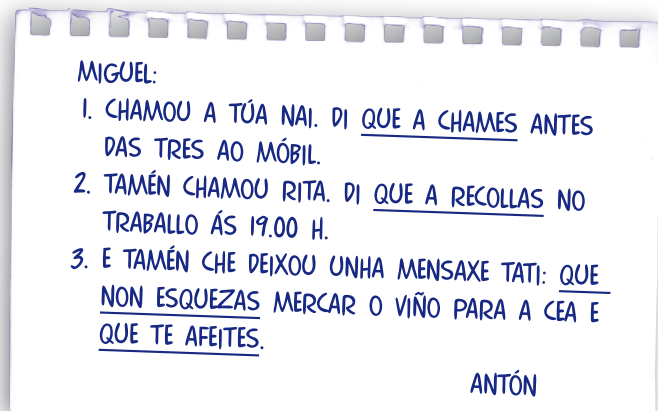 MIGUEL:
1. CHAMOU A TÚA NAI. DI QUE A CHAMES ANTES
DAS TRES AO MÓBIL.
2. TAMÉN CHAMOU RITA. DI QUE A RECOLLAS NO
TRABALLO ÁS 19.00 H.
3. E TAMÉN CHE DEIXOU UNHA MENSAXE TATI: QUE
NON ESQUEZAS MERCAR O VIÑO PARA A CEA E
QUE TE AFEITES.
ANTÓN